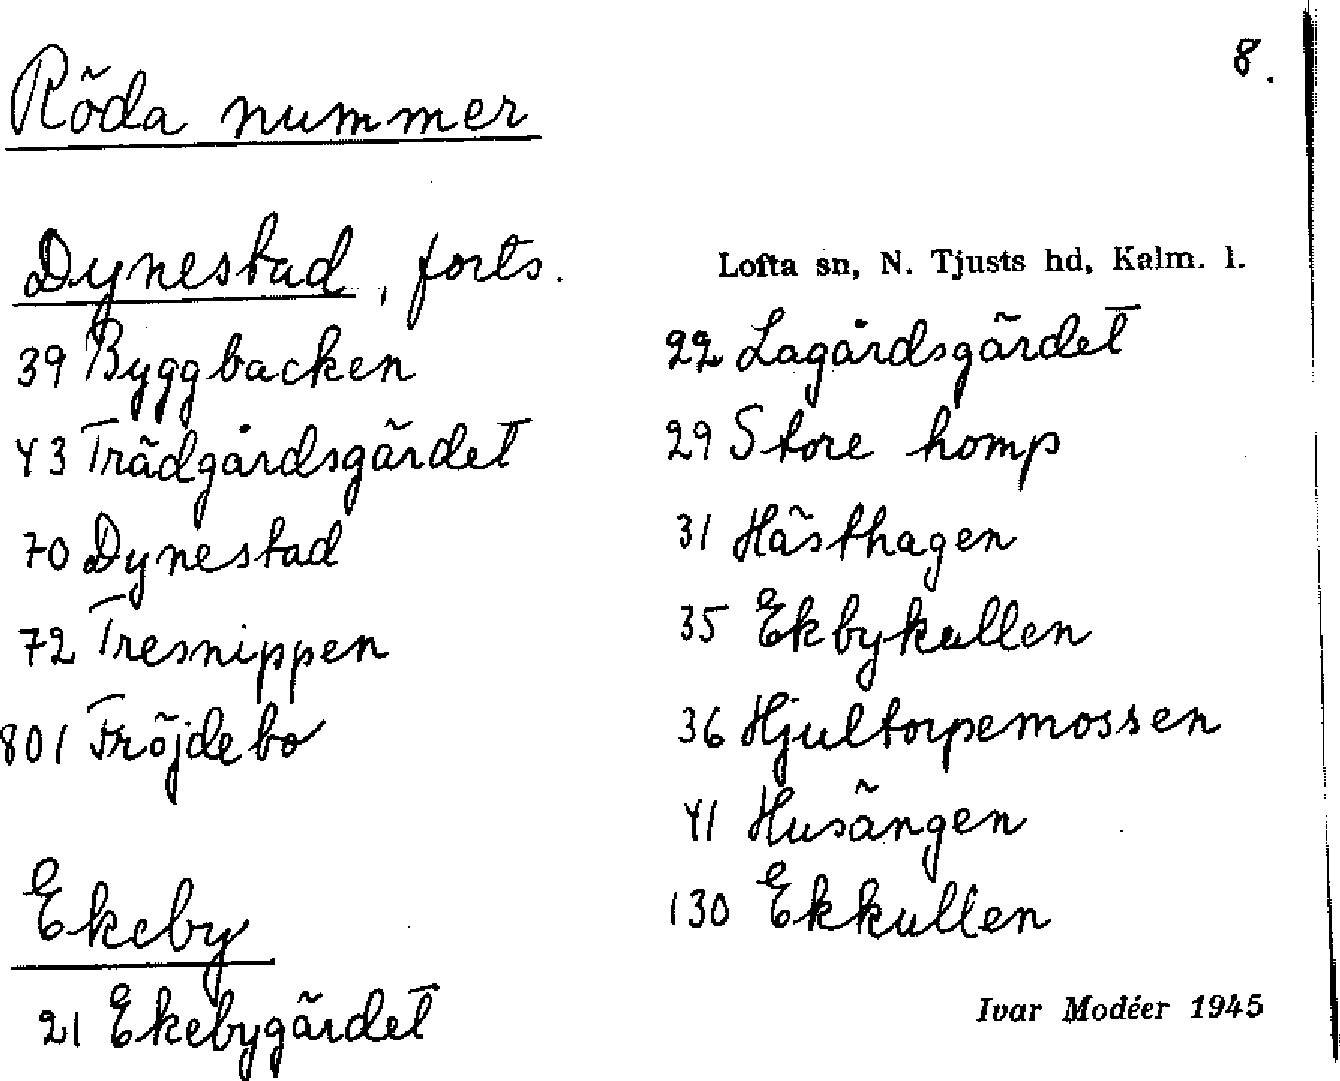 8.
Röda nummer
Dynestad, forts.
39 Byggbacken
43 Trädgårdsgärdet
70 Dynestad
72 Tresnippen
801 Fröjdebo
Ekeby
21 Ekebygärdet
Lofta sn, N. Tjusts hd, Kalm. l.
22 Lagårdsgärdet
29 Store homp
31 Hästhagen
35 Ekbykullen
36 Hjultorpemossen
41 Husängen
130 Ekkullen
Ivar Modéer 1945